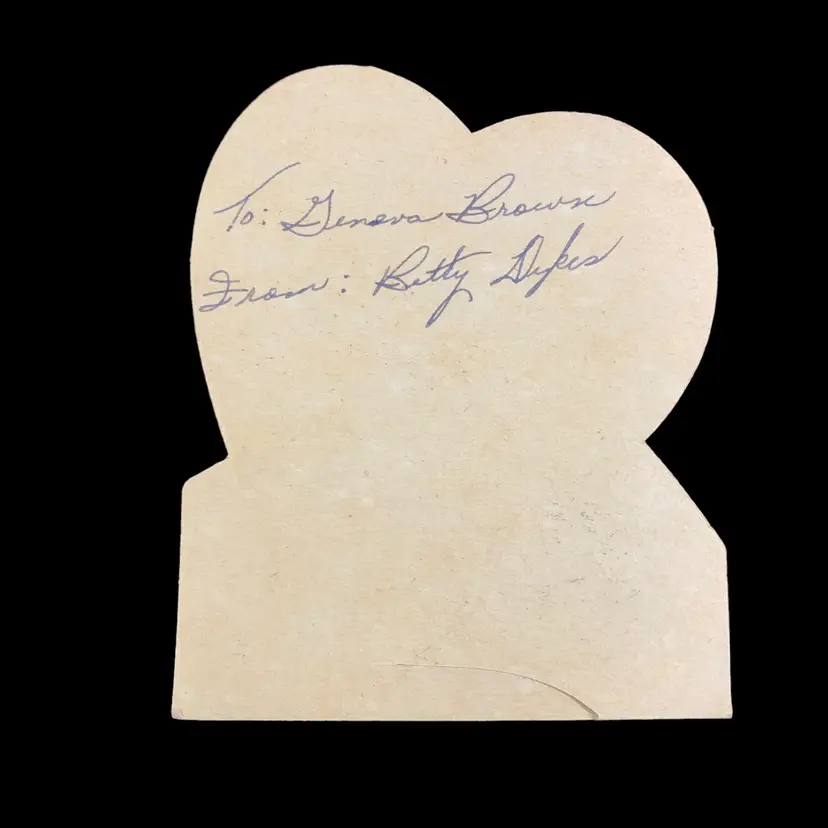 To: Geneva Brown
From: Betty Dykes